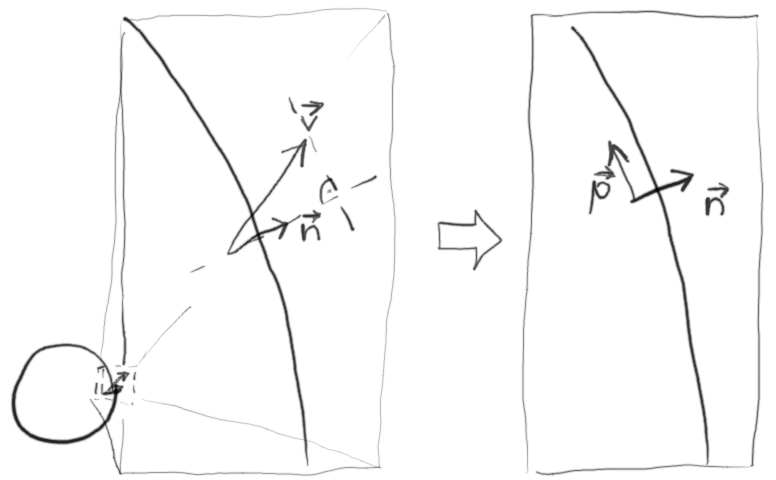 v⃗
n⃗
p⃗
n⃗